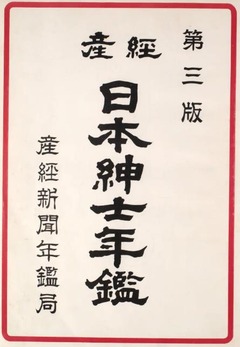 第三版
産經
日本紳士年鑑
産經新聞年鑑局